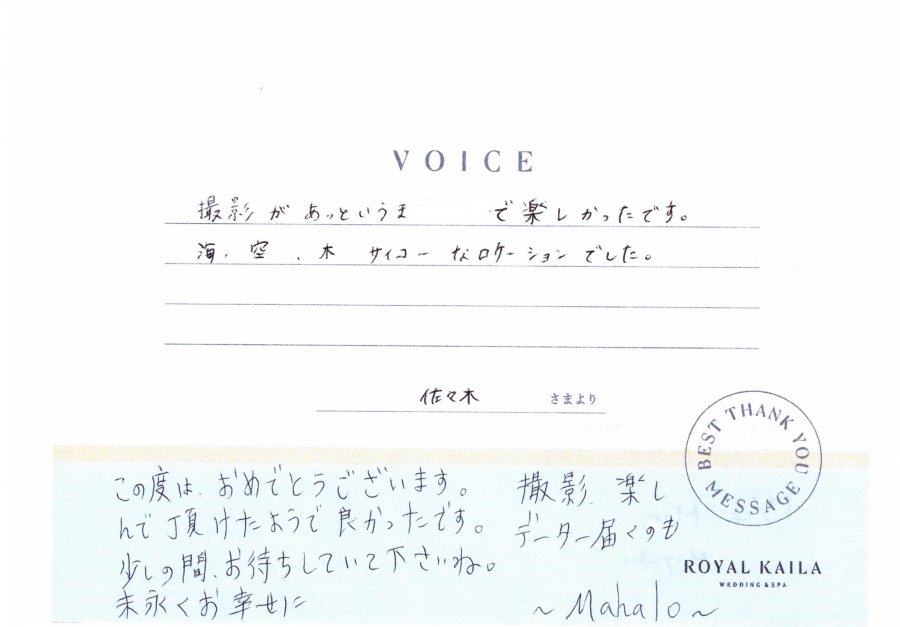 VOICE
撮影があっというまで楽しかったです。
海、空、木 サイコーなロケーションでした。
佐々木 さまより
BEST THANK YOU MESSAGE
この度は、おめでとうございます。 撮影、楽し
んで頂けたようで良かったです。 データー届くのも
少しの間、お待ちしていて下さいね。
末永くお幸せに ~Mahalo~
ROYAL KAILA
WEDDING & SPA